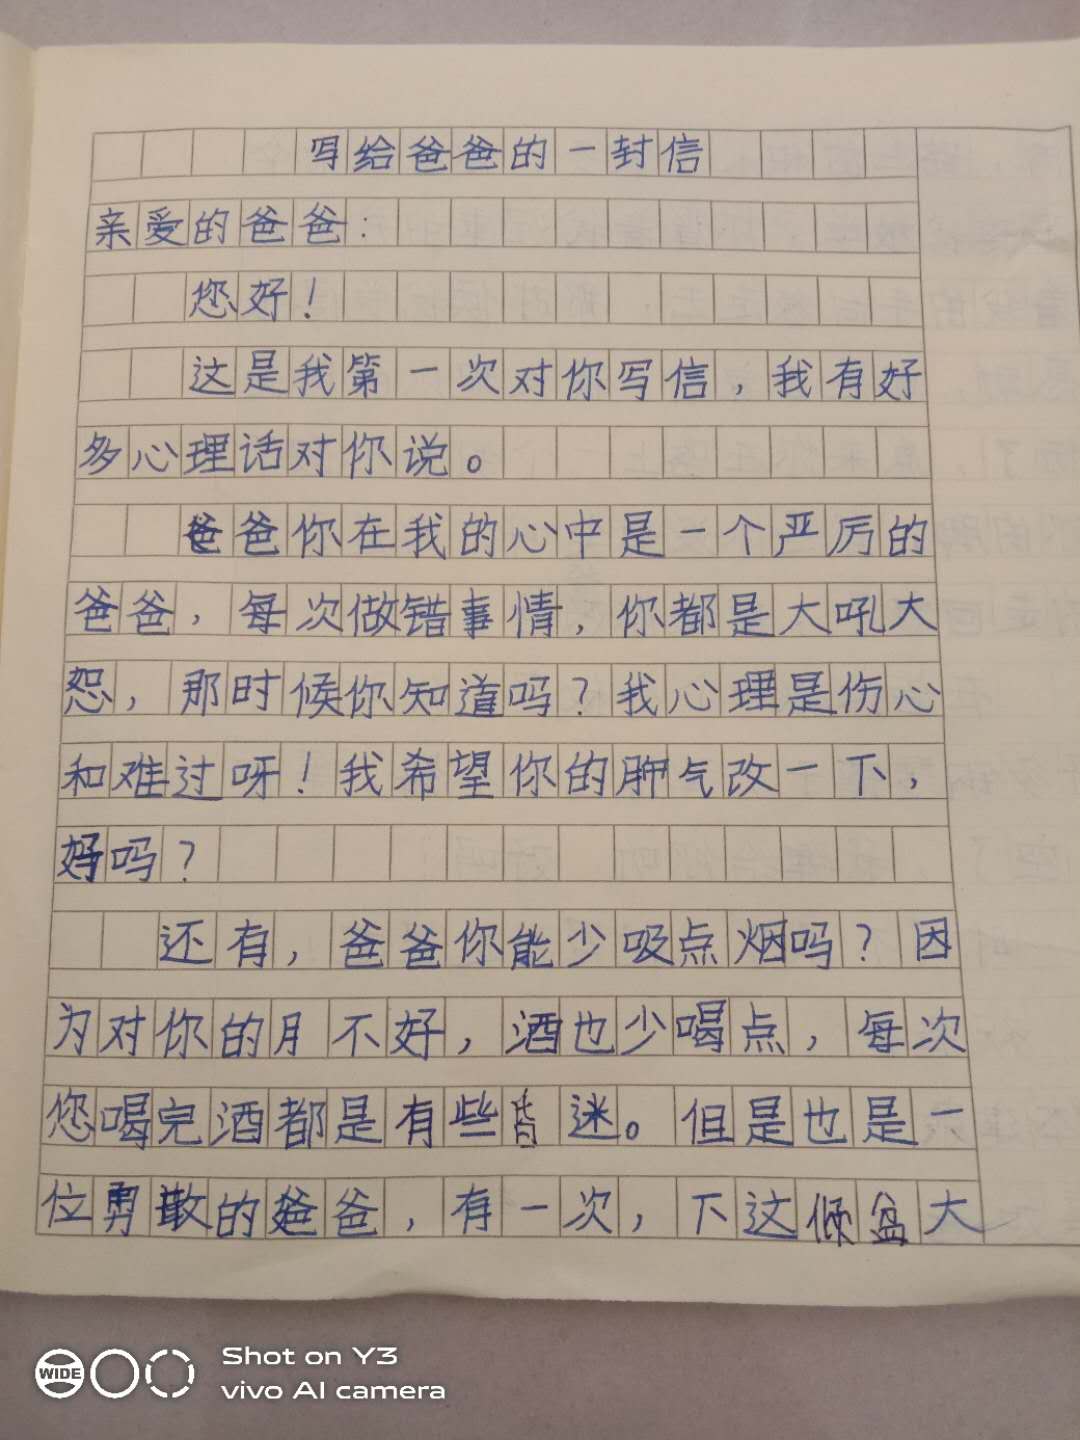 写给爸爸的一封信
亲爱的爸爸：
您好！
这是我第一次对你写信，我有好
多心理话对你说。
爸爸你在我的心中是一个严厉的
爸爸，每次做错事情，你都是大吼大
怒，那时候你知道吗？我心理是伤心
和难过呀！我希望你的脾气改一下，
好吗？
还有，爸爸你能少吸点烟吗？因
为对你的月不好，酒也少喝点，每次
您喝完酒都是有些昏迷。但是也是一
位勇敢的爸爸，有一次，下这倾盆大
WIDE
Shot on Y3
vivo AI camera